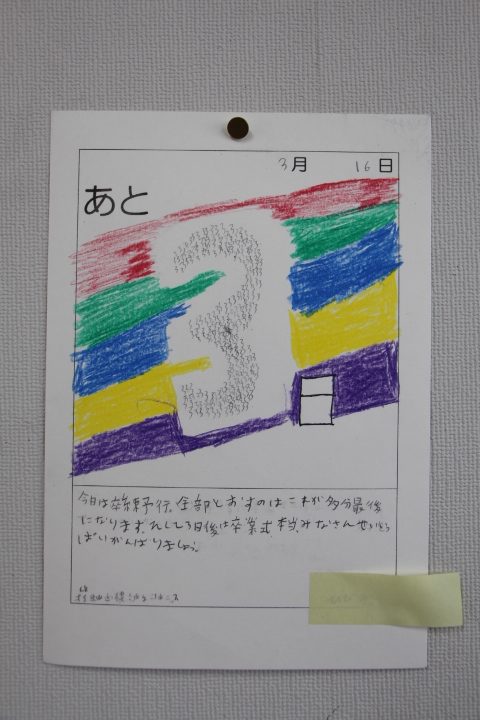 3月 16日
あと
3
日
今日は卒業式予行。全部とおすのは、これが多分最後
になります。そして3日後は卒業式。本当みなさんせいいっ
ぱいがんばりましょう。